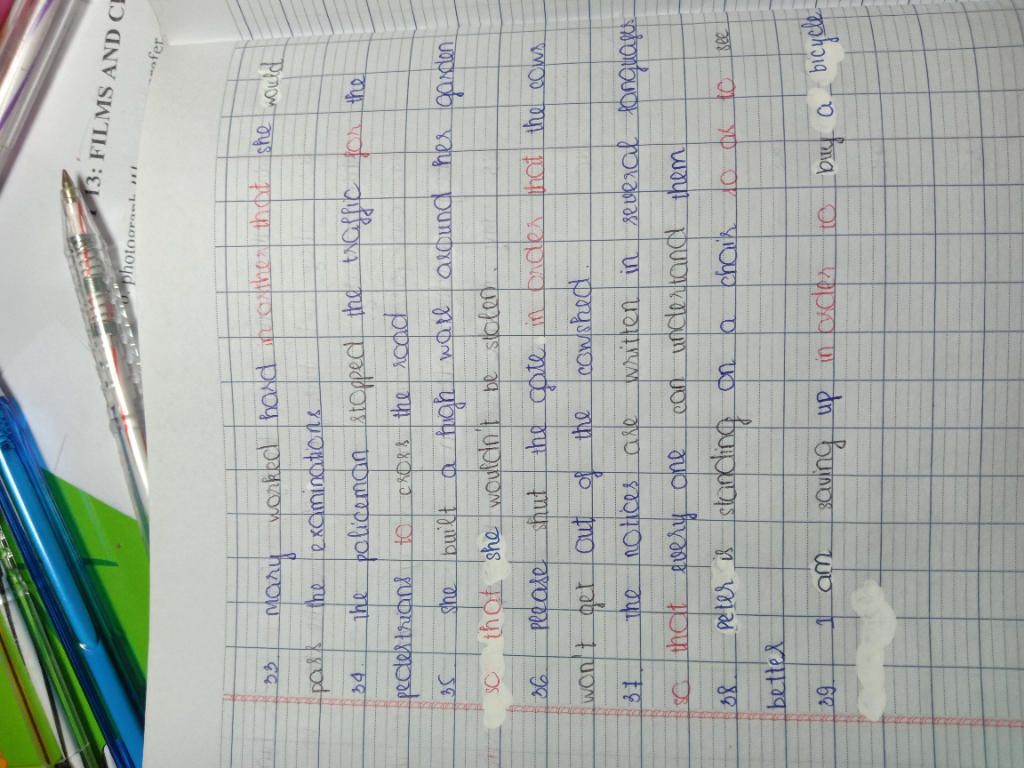 13: FILMS AND
33. mary worked hard in orther that she would
pass the examinations
34. the policeman stopped the traffic for the
pedestrians to cross the road
35 she built a high wale around her garden
so that she wouldn't be stolen.
36. please shut the gate in order that the cows
won't get out of the cowshed.
37. the notices are written in several languages
so that every one can understand them
38. peter is standing on a chair so as to see
better
39. I am saving up in order to buy a bicycle